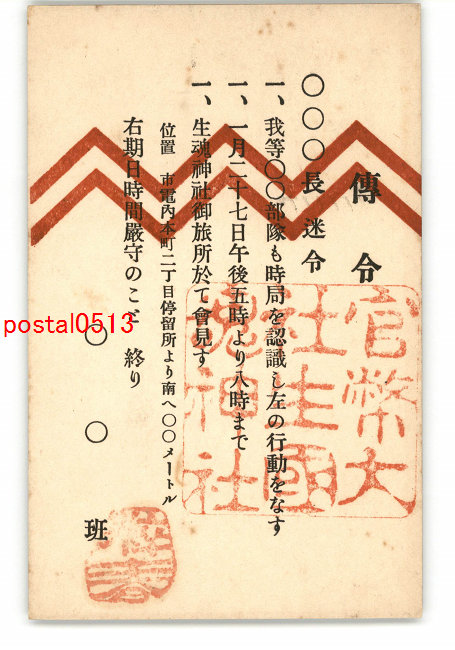 傳令
〇〇〇長 迷令
一、我等〇〇部隊も時局を認識し左の行動をなす
一、一月二十七日午後五時より八時まで
一、生魂神社御旅所於て會見す
位置 市電內本町二丁目停留所より南へ〇〇メートル
右期日時間嚴守のこど 終り
〇〇班
官幣大
社生國
魂神社
postal0513